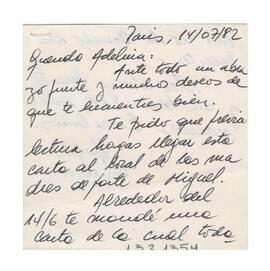 Paris, 14/07/82
Querida Adelina:
Ante todo un abra
zo fuerte y muchos deseos de
que te encuentres bien.
Te pido que previa
lectura hagas llegar esta
carta al local de las ma
dres de parte de Miguel.
Alrededor del
14/6 te mandé una
carta de la cual toda
132 1354